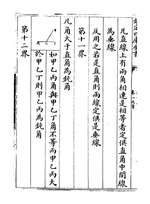 凡直線上有兩角相連是相等者定俱直角中間線
為垂線
反用之若是直角則兩線定俱是垂線
第十一界
凡角大于直角為鈍角
如甲乙丙角與甲乙丁角不等而甲乙丙大
於甲乙丁則甲乙丙為鈍角
第十二界